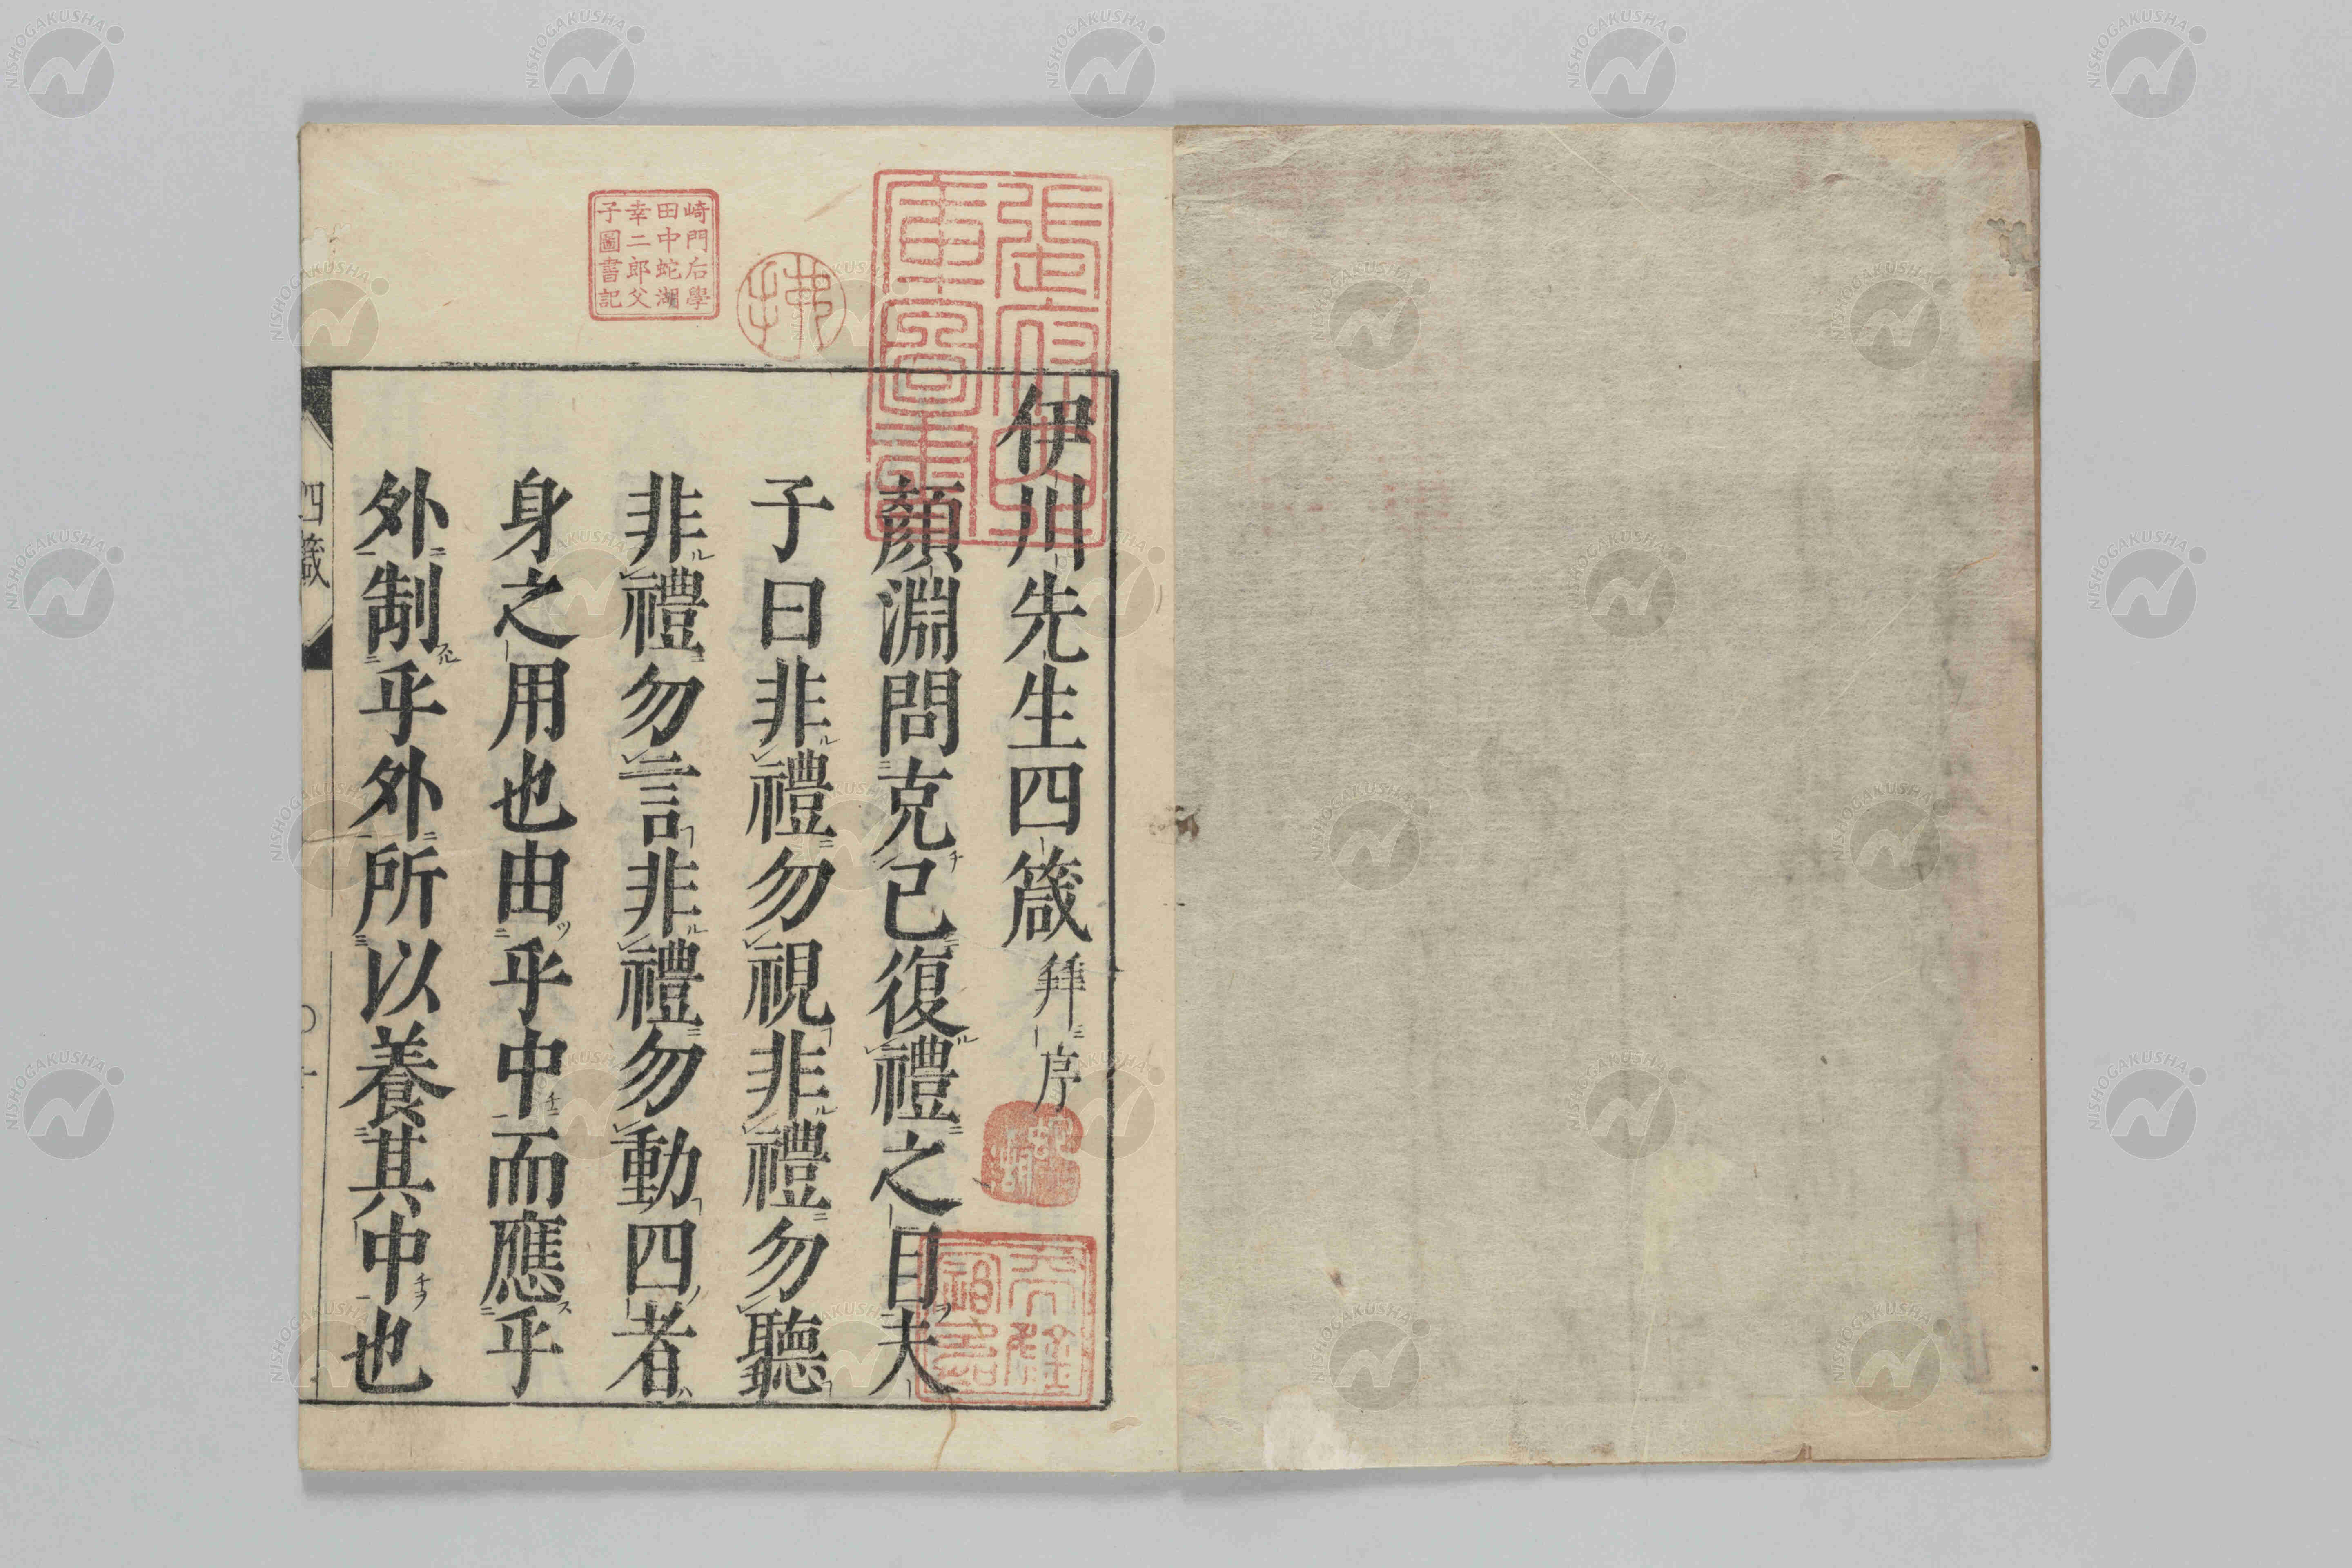 伊川先生四箴 拜序
顏淵問克己復禮之目夫
子曰非禮勿視非禮勿聽
非禮勿言非禮勿動四者
身之用也由乎中而應乎
外制乎外所以養其中也
四箴
崎門后學
田中蛇湖
幸二郎父
子圖書記
NISHOGAKUSHA